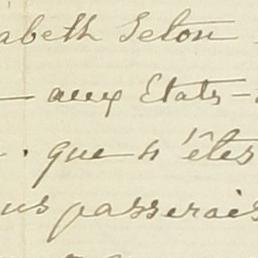 abeth Seton
— aux Etats-
. que n'êtes
us passerais